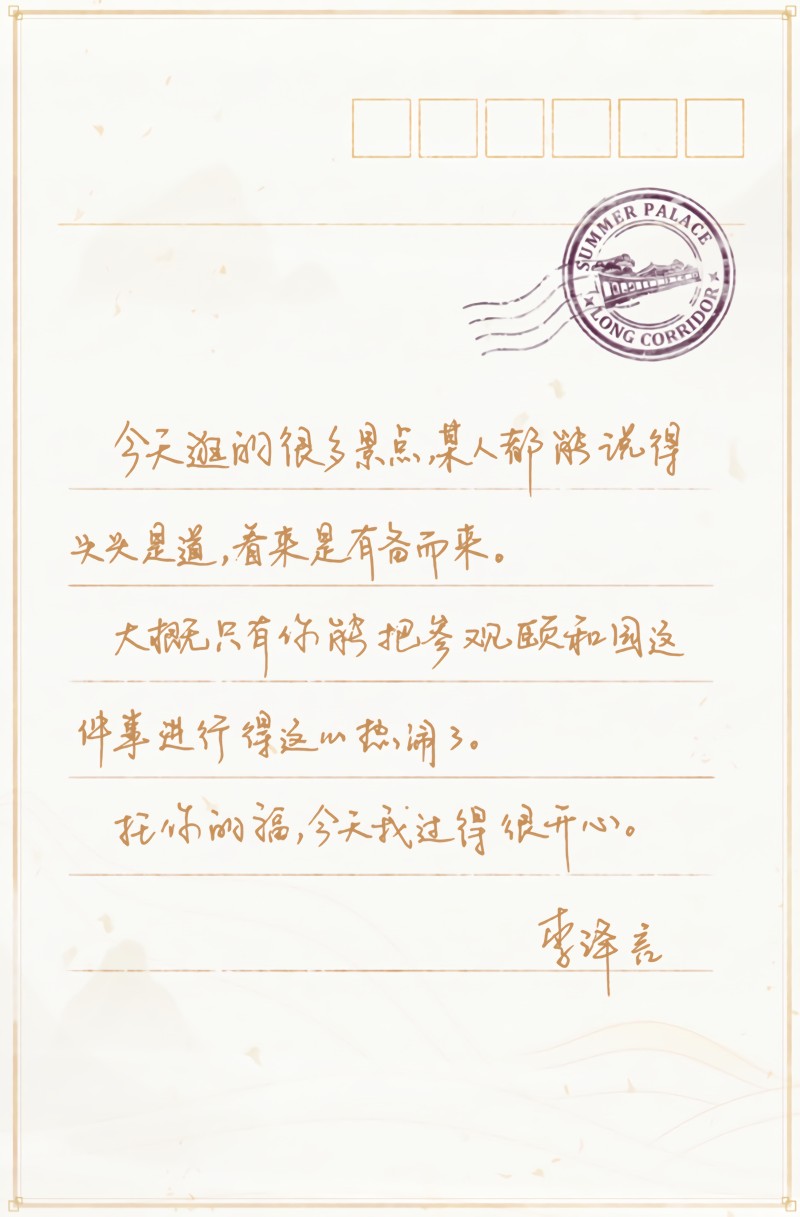 SUMMER PALACE
LONG CORRIDOR
今天逛的很多景点,某人都能说得
头头是道,看来是有备而来。
大概只有你能把参观颐和园这
件事进行得这么热闹了。
托你的福,今天我过得很开心。
李泽言